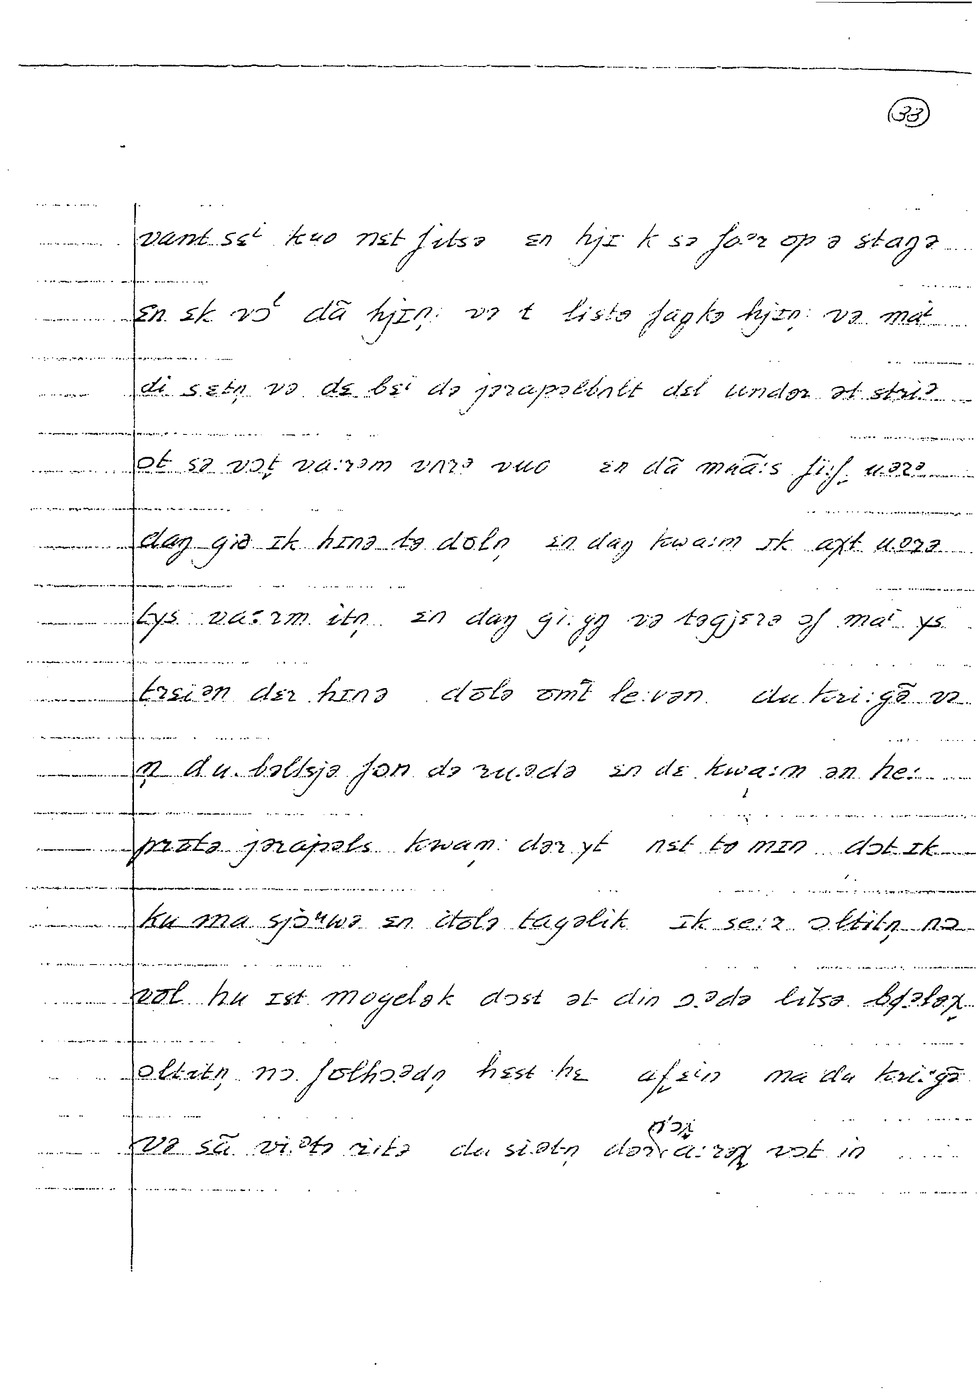 33
vant sɛⁱ kuo nɛt fitsə ɛn hjɪ k sə faər op ə staŋə
ɛn ɛk vɔⁱ dã hjɪṇ: və t listə faŋkə hjɪṇ: və maⁱ
di sɛtṇ və dɛ bɛⁱ də jərapəlbʌlt dɛl undər ət striə
ot sə vɔṭ va:rəm vʌrə vuo ɛn dã muã:s fi:f uərə
daŋ giə ɪk hɪnə tə dolṇ ɛn daŋ kwa:m ɪk aχt uərə
tys va:rm itṇ ɛn daŋ gi:ŋṇ və təgjɛrə ɔf maⁱ ys
trɛiən dɛr hɪnə dolə omt̃ le:vən du kri:gə̃ və
ṇ du.bəltsjə fon də ru.ədə ɛn dɛ kwa:m ən he:
protə jərapəls kwaṃ: dər yt nɛt to mɪn dɔt ɪk
ku ma sjɔuwə ɛn itolə taɣəlik ɪk se:r ɔltitṇ nɔ
vol hu ɪst moɣelək dɔst ət din ɔ.ədə litsə
ɔltitṇ nɔ folhɔədṇ hɛst hɛ afɛin ma du kri:gə̃
və sã viətə ritə du siətṇ vɔt in